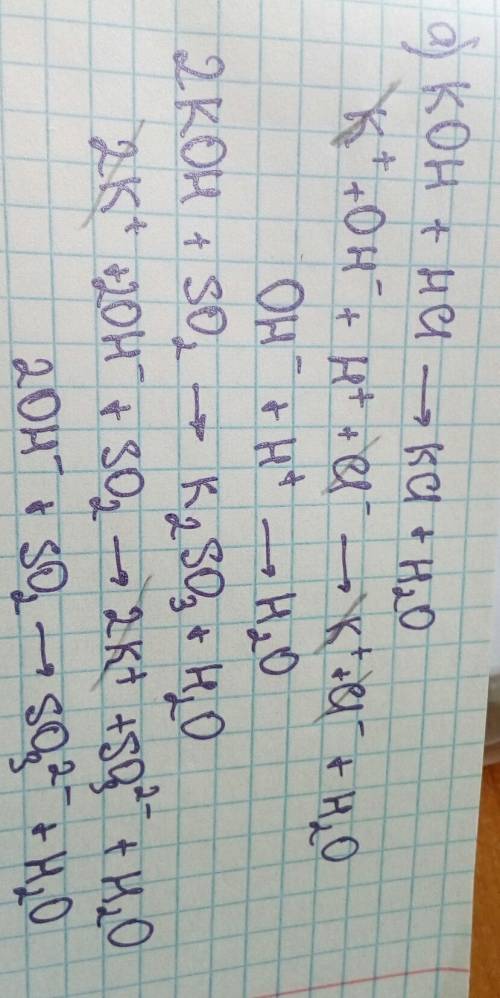 а) KOH + HCl → KCl + H₂O
K⁺ + OH⁻ + H⁺ + Cl⁻ → K⁺ + Cl⁻ + H₂O
OH⁻ + H⁺ → H₂O
2KOH + SO₂ → K₂SO₃ + H₂O
2K⁺ + 2OH⁻ + SO₂ → 2K⁺ + SO₃²⁻ + H₂O
2OH⁻ + SO₂ → SO₃²⁻ + H₂O